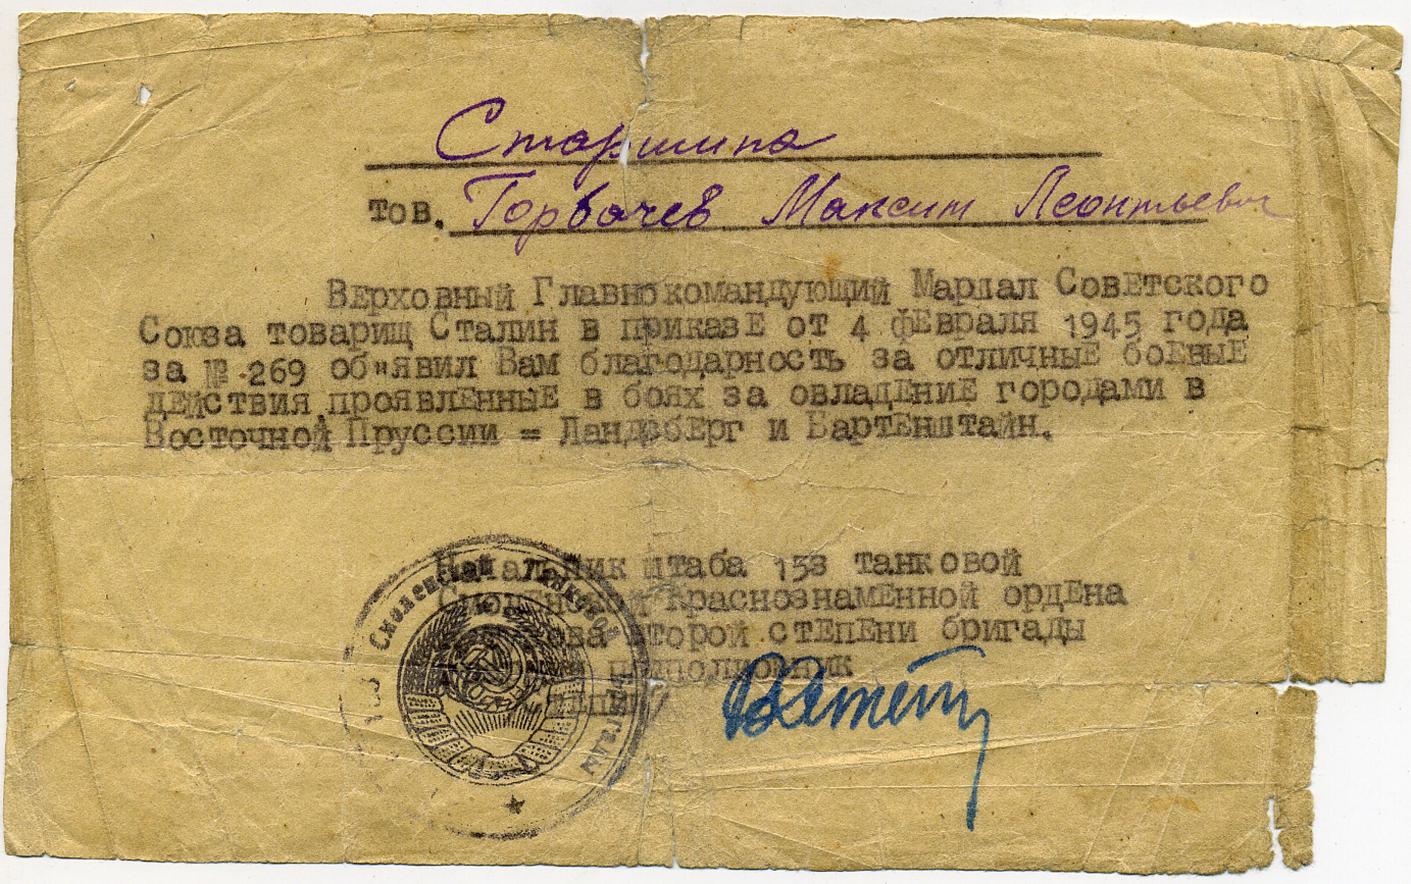 Старшина
тов. Горбачев Максим Леонтьевич
Верховный Главнокомандующий Маршал Советского
Союза товарищ Сталин в приказе от 4 февраля 1945 года
за № 269 об"явил Вам благодарность за отличные боевые
действия, проявленные в боях за овладение городами в
Восточной Пруссии = Ландзберг и Бартенштайн.
Начальник штаба 153 танковой
Смоленской Краснознаменной ордена
второй степени бригады
подполковник
153 Смоленской Танковой бригады